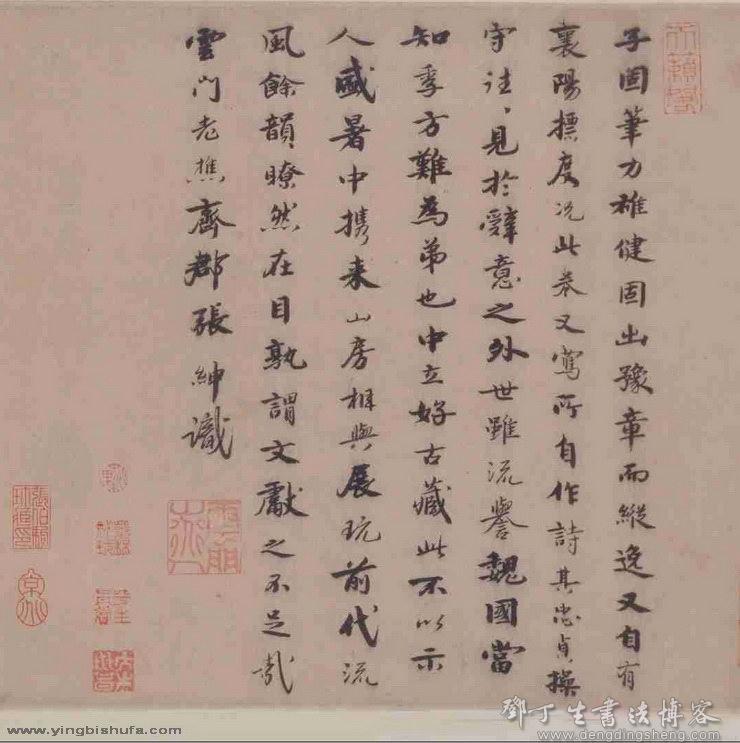 子固筆力雄健固出豫章而縱逸又自有
襄陽標度况此卷又寫所自作詩其忠貞操
守往〻見於辭意之外世雖流譽魏國當
知季方難為弟也中立好古藏此不以示
人盛暑中攜来山房相與展玩前代流
風餘韻暸然在目孰謂文獻之不足哉
雲門老樵齊郡張紳識
張伯駿
京兆
鄧丁生書法博客
www.yingbishufa.com
www.dengdingsheng.com